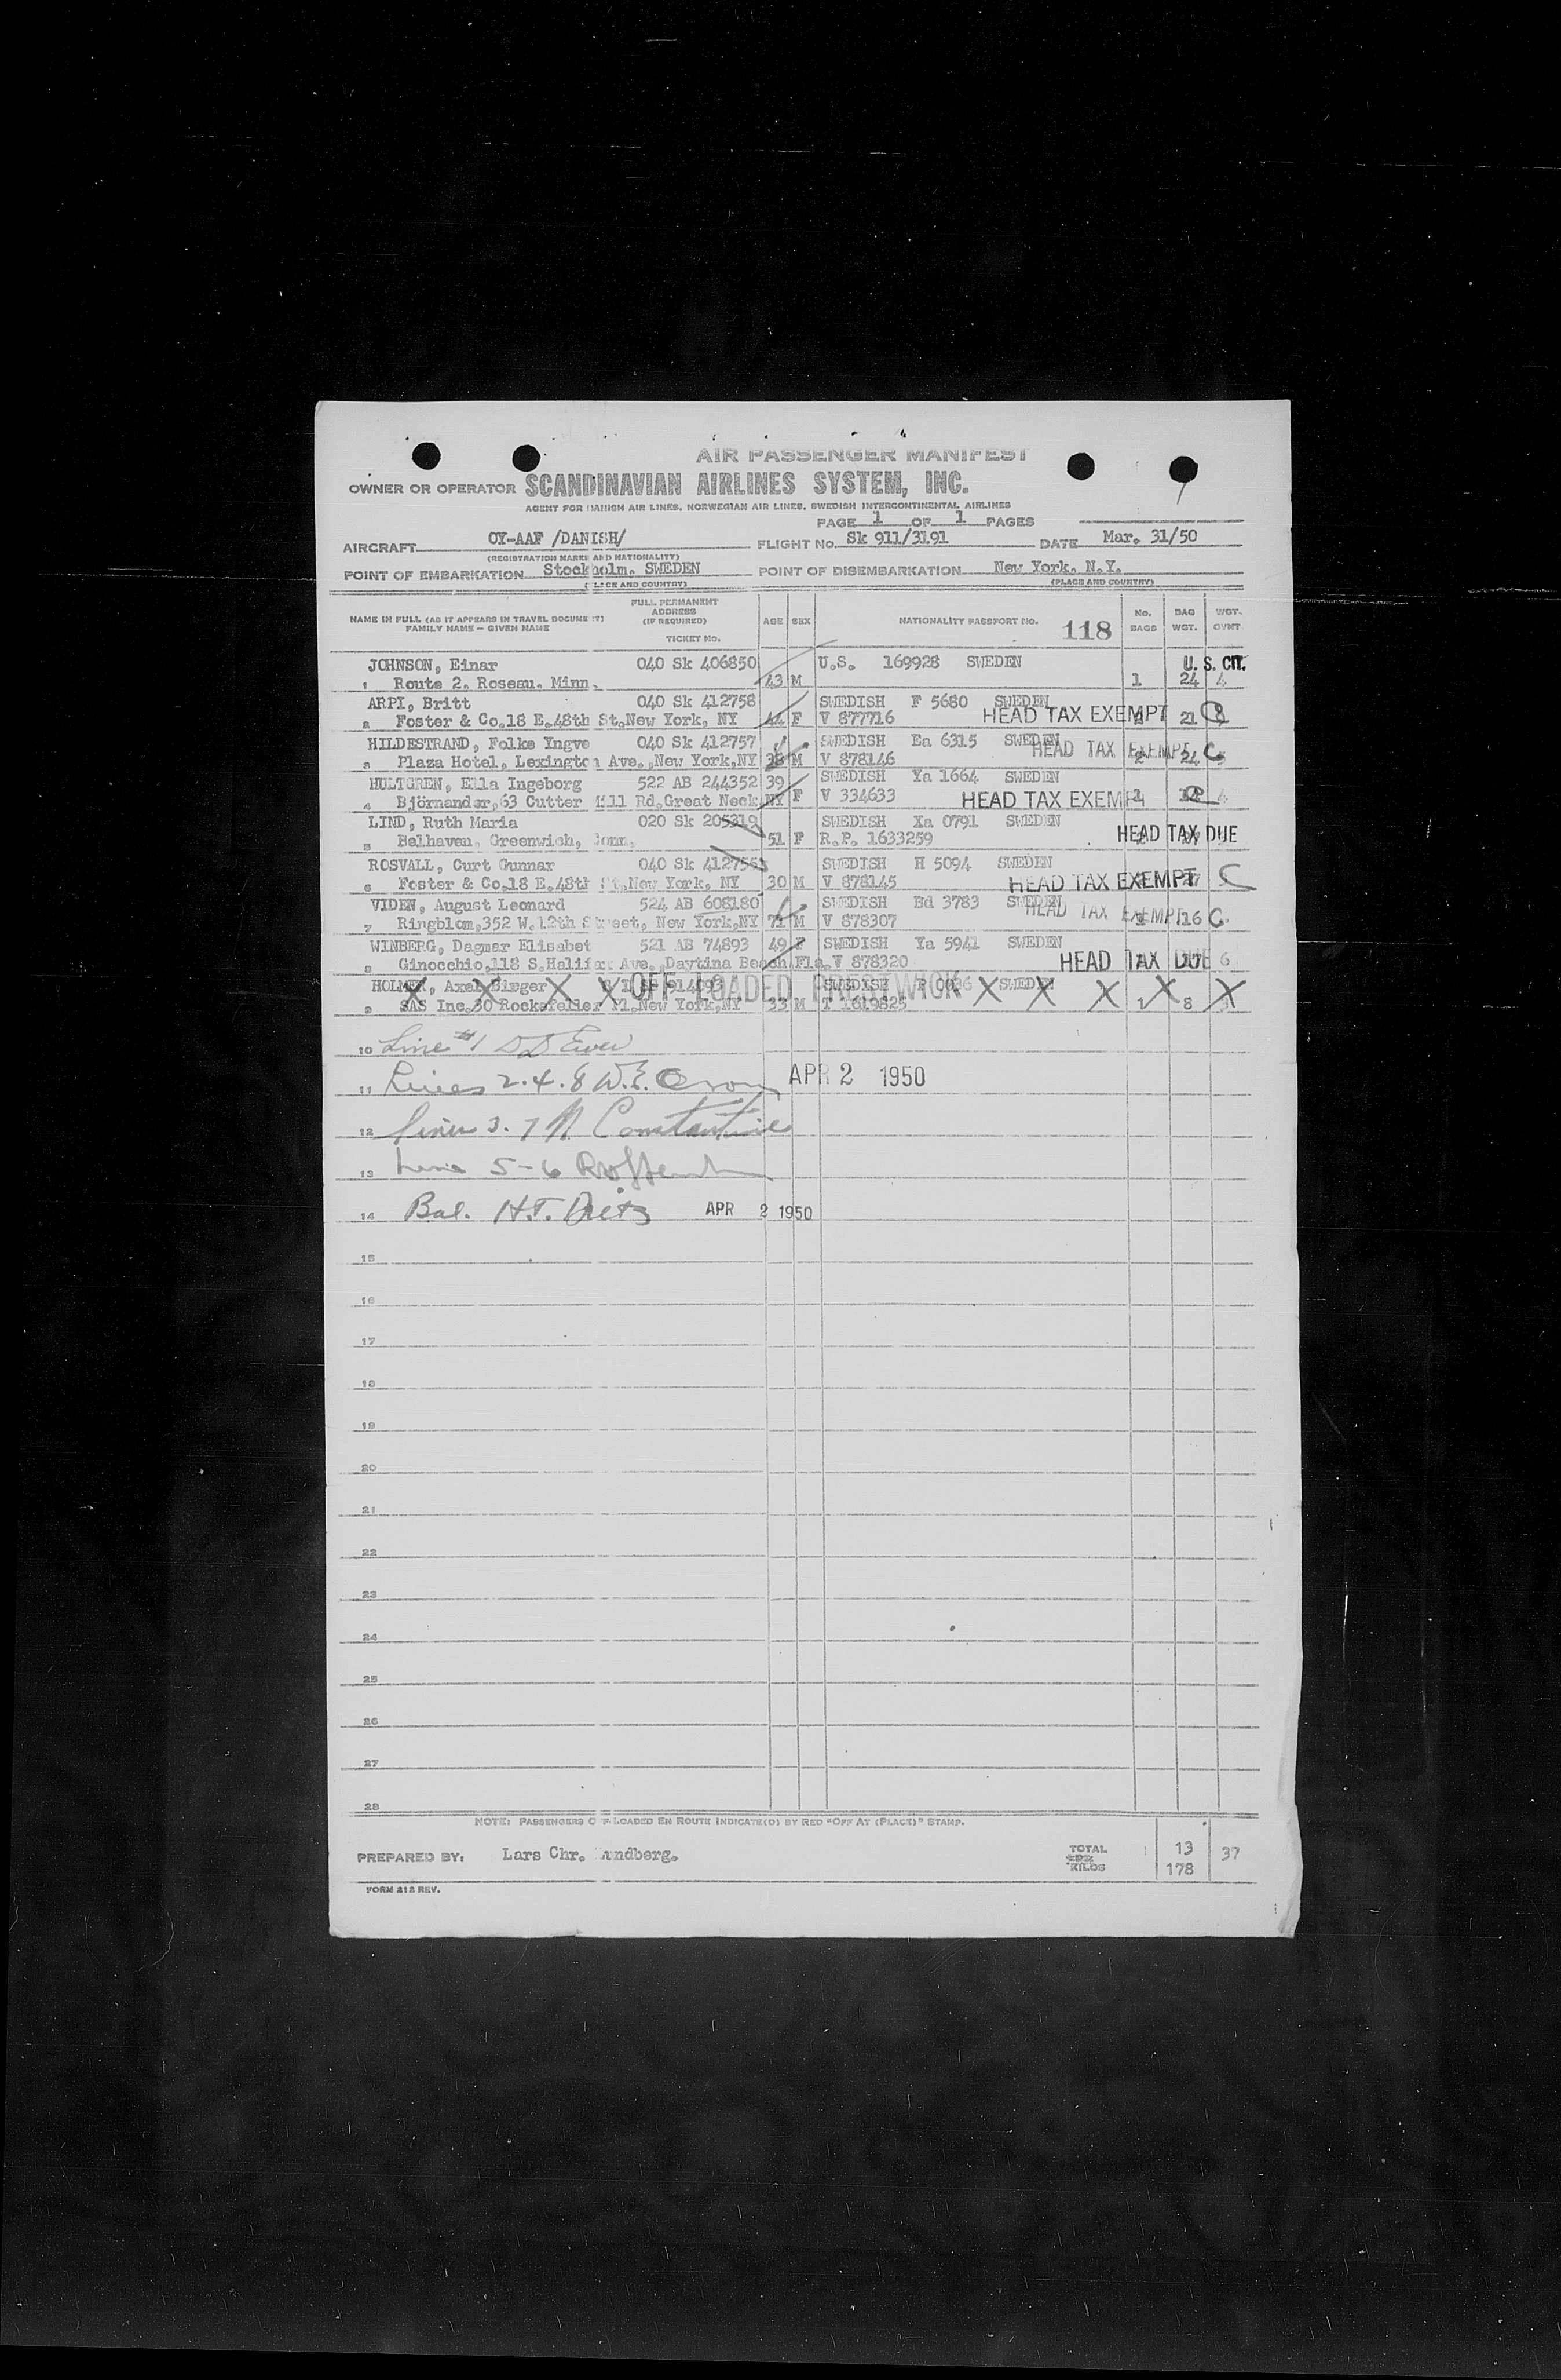 AIR PASSENGER MANIFEST
OWNER OR OPERATOR SCANDINAVIAN AIRLINES SYSTEM, INC.
AGENT FOR DANISH AIR LINES, NORWEGIAN AIR LINES, SWEDISH INTERCONTINENTAL AIRLINES
PAGE 1 OF 1 PAGES
AIRCRAFT OY-AAF /DANISH/ FLIGHT No. Sk 911/3191 DATE Mar. 31/50
(REGISTRATION MARKS AND NATIONALITY)
POINT OF EMBARKATION Stockholm. SWEDEN POINT OF DISEMBARKATION New York. N.Y.
(PLACE AND COUNTRY) (PLACE AND COUNTRY)
NAME IN FULL (AS IT APPEARS IN TRAVEL DOCUMENT) FAMILY NAME — GIVEN NAME
FULL PERMANENT ADDRESS (IF REQUIRED) TICKET No.
AGE SEX NATIONALITY PASSPORT No. 118 No. BAGS BAG WGT. WGT. OVNT
JOHNSON, Einar 040 Sk 406850 U.S. 169928 SWEDEN U. S. CIT.
1 Route 2. Roseau. Minn. 43 M 1 24 4
ARPI, Britt 040 Sk 412758 SWEDISH F 5680 SWEDEN
2 Foster & Co.18 E.48th St.New York, NY 44 F V 877716 HEAD TAX EXEMPT 21
HILDESTRAND, Folke Yngve 040 Sk 412757 SWEDISH Ea 6315 SWEDEN
3 Plaza Hotel, Lexington Ave.,New York,NY 38 M V 878146 HEAD TAX EXEMPT 2 24 C
HULTGREN, Ella Ingeborg 522 AB 244352 39 SWEDISH Ya 1664 SWEDEN
4 Björnander,63 Cutter Mill Rd,Great Neck NY F V 334633 HEAD TAX EXEMPT 4
LIND, Ruth Maria 020 Sk 205319 SWEDISH Xa 0791 SWEDEN
5 Belhaven, Greenwich, Conn. 51 F R.P. 1633259 HEAD TAX DUE
ROSVALL, Curt Gunnar 040 Sk 412755 SWEDISH H 5094 SWEDEN
6 Foster & Co.18 E.48th St,New York, NY 30 M V 878145 HEAD TAX EXEMPT C
VIDEN, August Leonard 524 AB 608180 SWEDISH Bd 3783 SWEDEN
7 Ringblom,352 W.12th Street, New York,NY 71 M V 878307 HEAD TAX EXEMPT 16 C
WINBERG, Dagmar Elisabet 521 AB 74893 49 F SWEDISH Ya 5941 SWEDEN
8 Ginocchio,118 S.Halifax Ave. Daytina Beach Fla. V 878320 HEAD TAX DUE 6
HOLMEN, Axel Birger OFF LOADED PRESTWICK SWEDISH SWEDEN
9 SAS Inc.30 Rockefeller Pl.New York,NY 33 M T 1619825 1 8
X X X X X X X X X
10 Line #1 DD
11 Lines 2.4.8 W.E. APR 2 1950
12 Lines 3. 7 N Constantine
13 Line 5-6
14 Bal. H.J. Dietz APR 2 1950
15
16
17
18
19
20
21
22
23
24
25
26
27
28
NOTE: PASSENGERS OFF-LOADED EN ROUTE INDICATE(D) BY RED "OFF AT (PLACE)" STAMP.
PREPARED BY: Lars Chr. TOTAL 13 37
KILOS 178
FORM 212 REV.